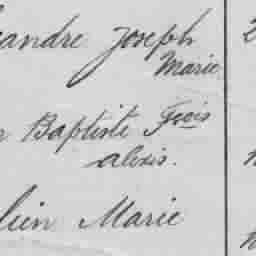 andre Joseph
Marie
Baptiste Fcois
alexis.
lien Marie